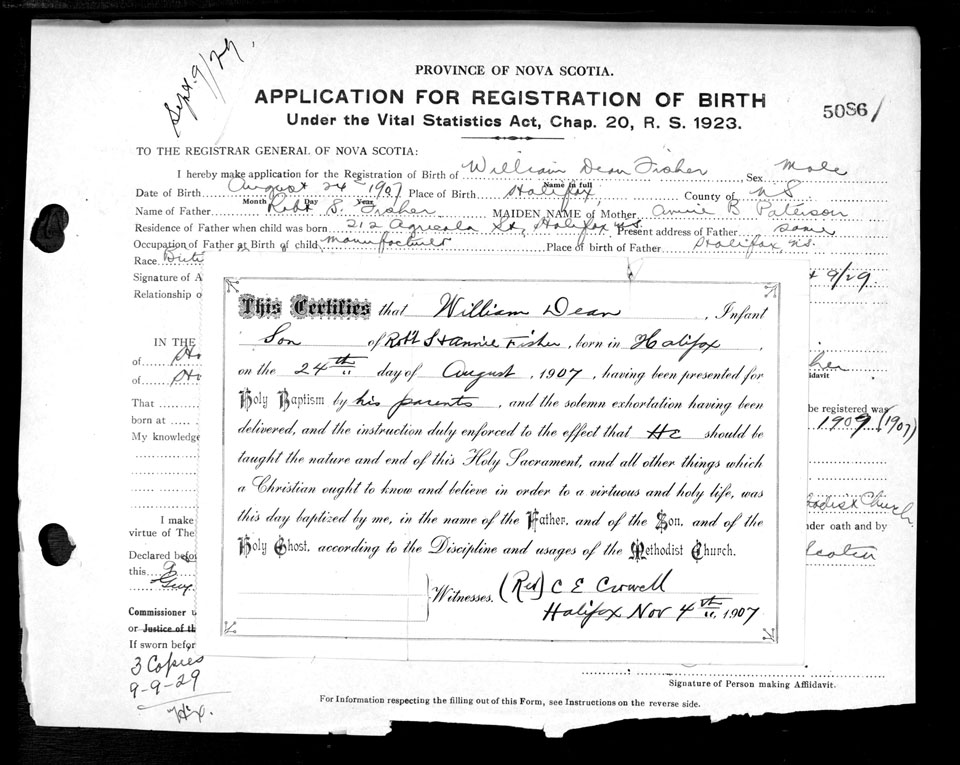 Sept. 9/29.
PROVINCE OF NOVA SCOTIA.
APPLICATION FOR REGISTRATION OF BIRTH
Under the Vital Statistics Act, Chap. 20, R. S. 1923.
50861
TO THE REGISTRAR GENERAL OF NOVA SCOTIA:
I hereby make application for the Registration of Birth of William Dean Fisher Sex Male
Name in full
Date of Birth August 24 1907 Place of Birth Halifax, County of NS
Month Day Year
Name of Father Robt S. Fisher MAIDEN NAME of Mother Annie B Paterson
Residence of Father when child was born 212 Agricola St, Halifax NS. Present address of Father same
Occupation of Father at Birth of child manufacturer Place of birth of Father Halifax, NS.
Race
Signature of A 9/29.
Relationship o
This Certifies that William Dean, Infant
Son of Robt S & Annie Fisher, born in Halifax,
on the 24th day of August, 1907, having been presented for
Holy Baptism by his parents, and the solemn exhortation having been
delivered, and the instruction duly enforced to the effect that He should be
taught the nature and end of this Holy Sacrament, and all other things which
a Christian ought to know and believe in order to a virtuous and holy life, was
this day baptized by me, in the name of the Father, and of the Son, and of the
Holy Ghost, according to the Discipline and usages of the Methodist Church.
Witnesses. (Rev) C E Crowell
Halifax Nov 4th, 1907
IN THE
of
of
davit
That
be registered was
born at 1909 (1907)
My knowledge
Church
I make nder oath and by
virtue of The
Declared before
this 9
Commissioner
or Justice of th
If sworn before
3 Copies
9-9-29
Signature of Person making Affidavit.
For Information respecting the filling out of this Form, see Instructions on the reverse side.